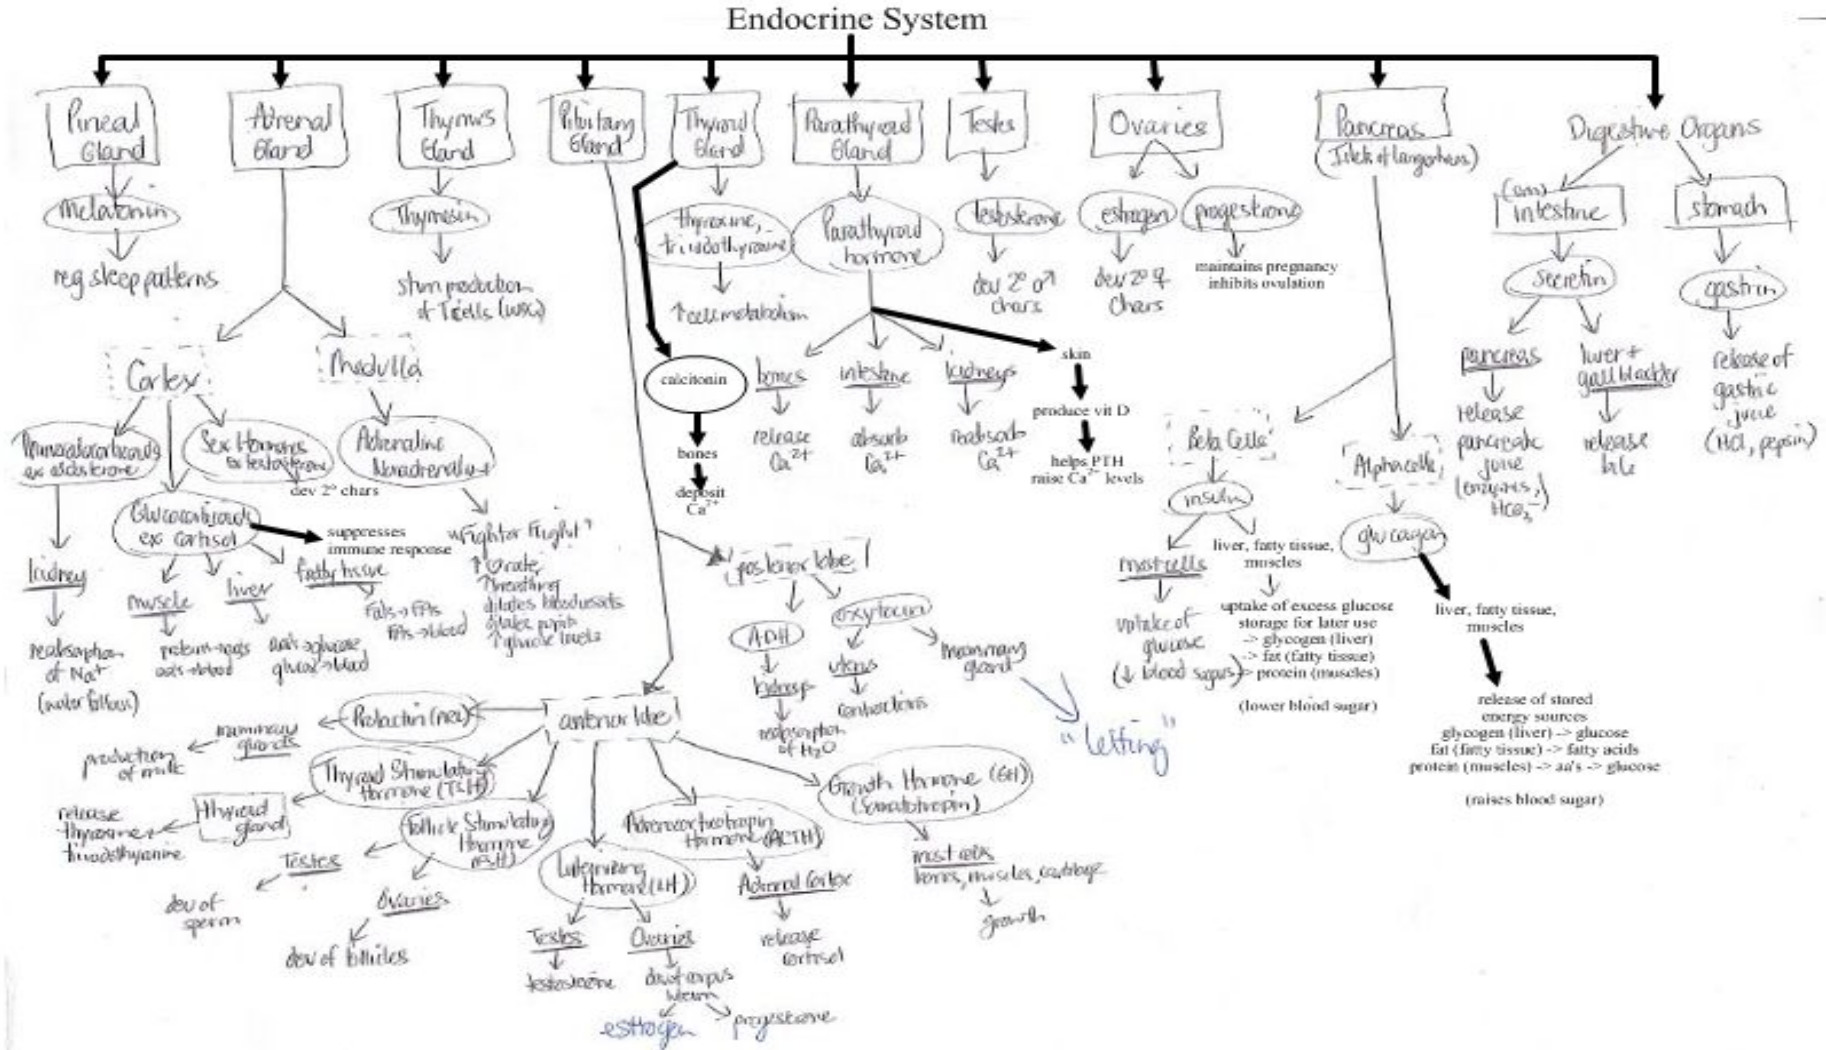 Endocrine System
Pineal
Gland
Melatonin
reg sleep patterns
Adrenal
Gland
Cortex
Medulla
Mineralocorticoids
ex aldosterone
kidney
reabsorption
of Na+
(water follows)
Sex Hormones
ex testosterone
dev 2° chars
Glucocorticoids
ex cortisol
suppresses
immune response
muscle
protein→aa's
aa's→blood
liver
aa's→glucose
glucose→blood
fatty tissue
Fats→FAs
FAs→blood
Adrenaline
Noradrenaline
"Fight or Flight"
↑ rate
↑ breathing
dilates blood vessels
dilates pupils
↑ glucose levels
Thymus
Gland
Thymosin
stim production
of T cells (WBCs)
Pituitary
Gland
posterior lobe
ADH
kidneys
reabsorption
of H2O
oxytocin
uterus
contractions
mammary
gland
"letting"
anterior lobe
Prolactin (PRL)
mammary
glands
production
of milk
Thyroid Stimulating
Hormone (TSH)
thyroid
gland
release
thyroxine
triiodothyronine
Follicle Stimulating
Hormone
(FSH)
Testes
dev of
sperm
Ovaries
dev of follicles
Luteinizing
Hormone (LH)
Testes
testosterone
Ovaries
dev of corpus
luteum
estrogen
progesterone
Adrenocorticotropin
Hormone (ACTH)
Adrenal Cortex
release
cortisol
Growth Hormone (GH)
(Somatotropin)
most cells
bones, muscles, cartilage
growth
Thyroid
Gland
thyroxine,
triiodothyronine
↑ cell metabolism
calcitonin
bones
deposit
Ca2+
Parathyroid
Gland
Parathyroid
hormone
bones
release
Ca2+
intestine
absorb
Ca2+
kidneys
reabsorb
Ca2+
skin
produce vit D
helps PTH
raise Ca2+ levels
Testes
testosterone
dev 2° ♂
chars
Ovaries
estrogen
dev 2° ♀
chars
progestrone
maintains pregnancy
inhibits ovulation
Pancreas
(Islets of Langerhans)
Beta Cells
insulin
most cells
uptake of
glucose
(↓ blood sugar)
liver, fatty tissue,
muscles
uptake of excess glucose
storage for later use
-> glycogen (liver)
-> fat (fatty tissue)
-> protein (muscles)
(lower blood sugar)
Alpha cells
glucagon
liver, fatty tissue,
muscles
release of stored
energy sources
glycogen (liver) -> glucose
fat (fatty tissue) -> fatty acids
protein (muscles) -> aa's -> glucose
(raises blood sugar)
Digestive Organs
intestine
secretin
pancreas
release
pancreatic
juice
(enzymes,
HCO3-)
liver +
gallbladder
release
bile
stomach
gastrin
release of
gastric
juice
(HCl, pepsin)